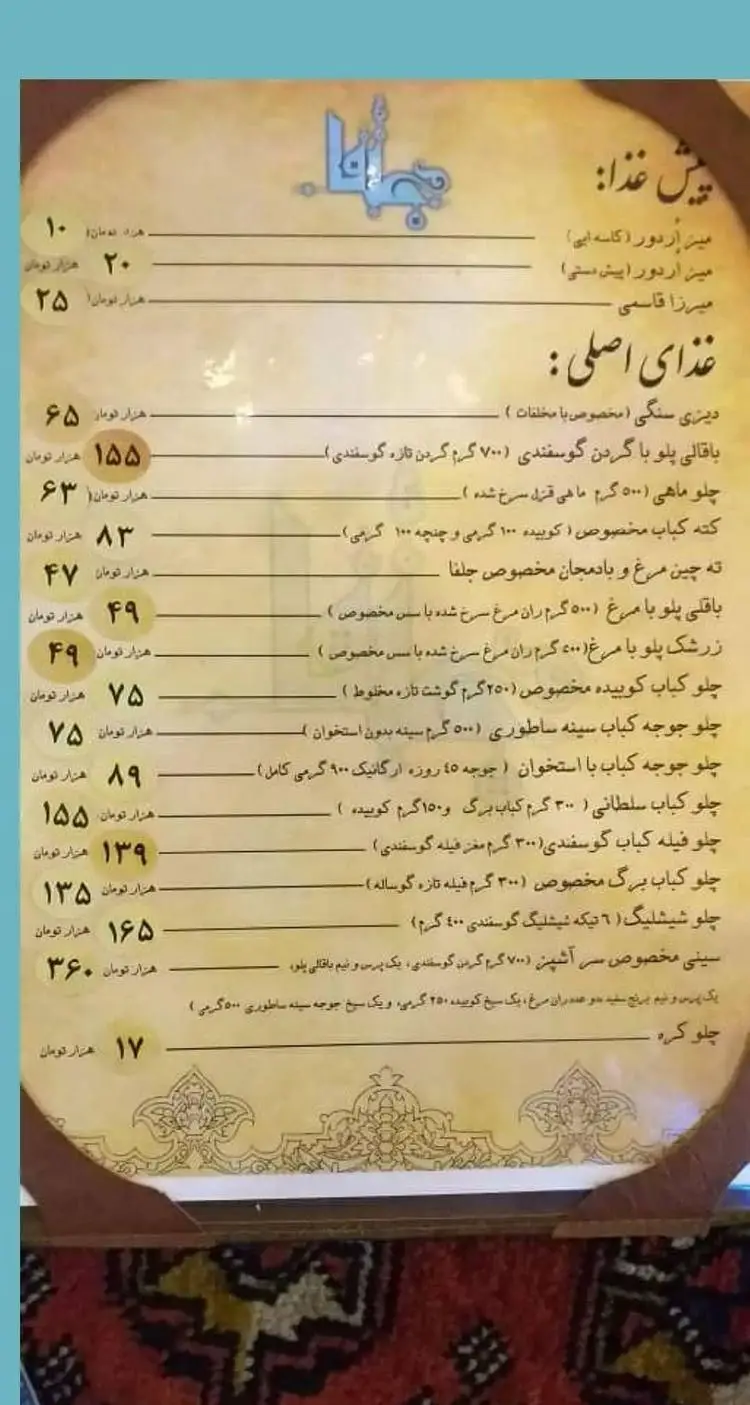 جلفا
پیش غذا:
میز اُردور (کاسه ایی) هزار تومان ۱۰
میز اُردور (پیش دستی) ۲۰ هزار تومان
میرزا قاسمی هزار تومان ۲۵
غذای اصلی:
دیزی سنگی (مخصوص با مخلفات) هزار تومان ۶۵
باقالی پلو با گردن گوسفندی (۷۰۰ گرم گردن تازه گوسفندی) ۱۵۵ هزار تومان
چلو ماهی (۵۰۰ گرم ماهی قزل سرخ شده) هزار تومان ۶۳
کته کباب مخصوص (کوبیده ۱۰۰ گرمی و چنچه ۱۰۰ گرمی) ۸۳ هزار تومان
ته چین مرغ و بادمجان مخصوص جلفا هزار تومان ۴۷
باقلی پلو با مرغ (۵۰۰ گرم ران مرغ سرخ شده با سس مخصوص) ۴۹ هزار تومان
زرشک پلو با مرغ (۵۰۰ گرم ران مرغ سرخ شده با سس مخصوص) هزار تومان ۴۹
چلو کباب کوبیده مخصوص (۲۵۰گرم گوشت تازه مخلوط) ۷۵ هزار تومان
چلو جوجه کباب سینه ساطوری (۵۰۰ گرم سینه بدون استخوان) هزار تومان ۷۵
چلو جوجه کباب با استخوان (جوجه ٤٥ روزه ارگانیک ۹۰۰ گرمی کامل) ۸۹ هزار تومان
چلو کباب سلطانی (۳۰۰ گرم کباب برگ و۱۵۰گرم کوبیده) هزار تومان ۱۵۵
چلو فیله کباب گوسفندی(۳۰۰ گرم مغز فیله گوسفندی) ۱۳۹ هزار تومان
چلو کباب برگ مخصوص (۳۰۰ گرم فیله تازه گوساله) هزار تومان ۱۳۵
چلو شیشلیگ (٦ تیکه شیشلیگ گوسفندی ٤۰۰ گرم) ۱۶۵ هزار تومان
سینی مخصوص سر آشپز (۷۰۰ گرم گردن گوسفندی، یک پرس و نیم باقالی پلو، هزار تومان ۳۶۰
یک پرس و نیم برنج سفید، دو عدد ران مرغ، یک سیخ کوبیده ۲۵۰ گرمی، و یک سیخ جوجه سینه ساطوری ۵۰۰گرمی)
چلو کره ۱۷ هزار تومان